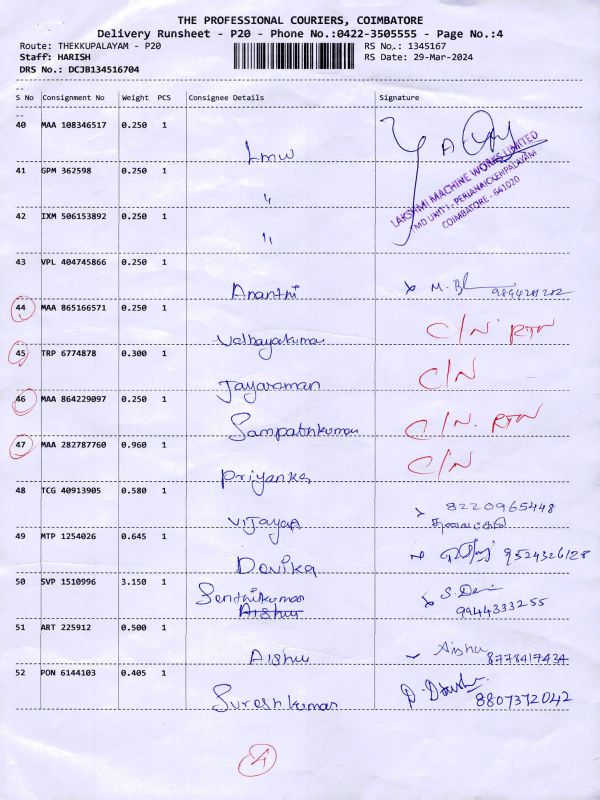 THE PROFESSIONAL COURIERS, COIMBATORE
Delivery Runsheet - P20 - Phone No.:0422-3505555 - Page No.:4
Route: THEKKUPALAYAM - P20 RS No.: 1345167
Staff: HARISH RS Date: 29-Mar-2024
DRS No.: DCJB134516704
S No Consignment No Weight PCS Consignee Details Signature
40 MAA 108346517 0.250 1
Lmw
LAKSHMI MACHINE WORKS LIMITED
UNIT I - PERIANAICKENPALAYAM
COIMBATORE - 641020
41 GPM 362598 0.250 1
"
42 IXM 506153892 0.250 1
"
43 VPL 404745866 0.250 1
Ananthi M.
44 MAA 865166571 0.250 1
C/N RTN
45 TRP 6774878 0.300 1
Jayaraman C/N
46 MAA 864229097 0.250 1
Sampathkumar C/N. RTN
47 MAA 282787760 0.960 1
Priyanka C/N
48 TCG 40913905 0.580 1
8220965448
49 MTP 1254026 0.645 1
Devika 9524326128
50 SVP 1510996 3.150 1
Senthilkumar S. Devi
Aishu 9944333255
51 ART 225912 0.500 1
Aishu Aishu
8778417434
52 PON 6144103 0.405 1
Sureshkumar 8807372042
4